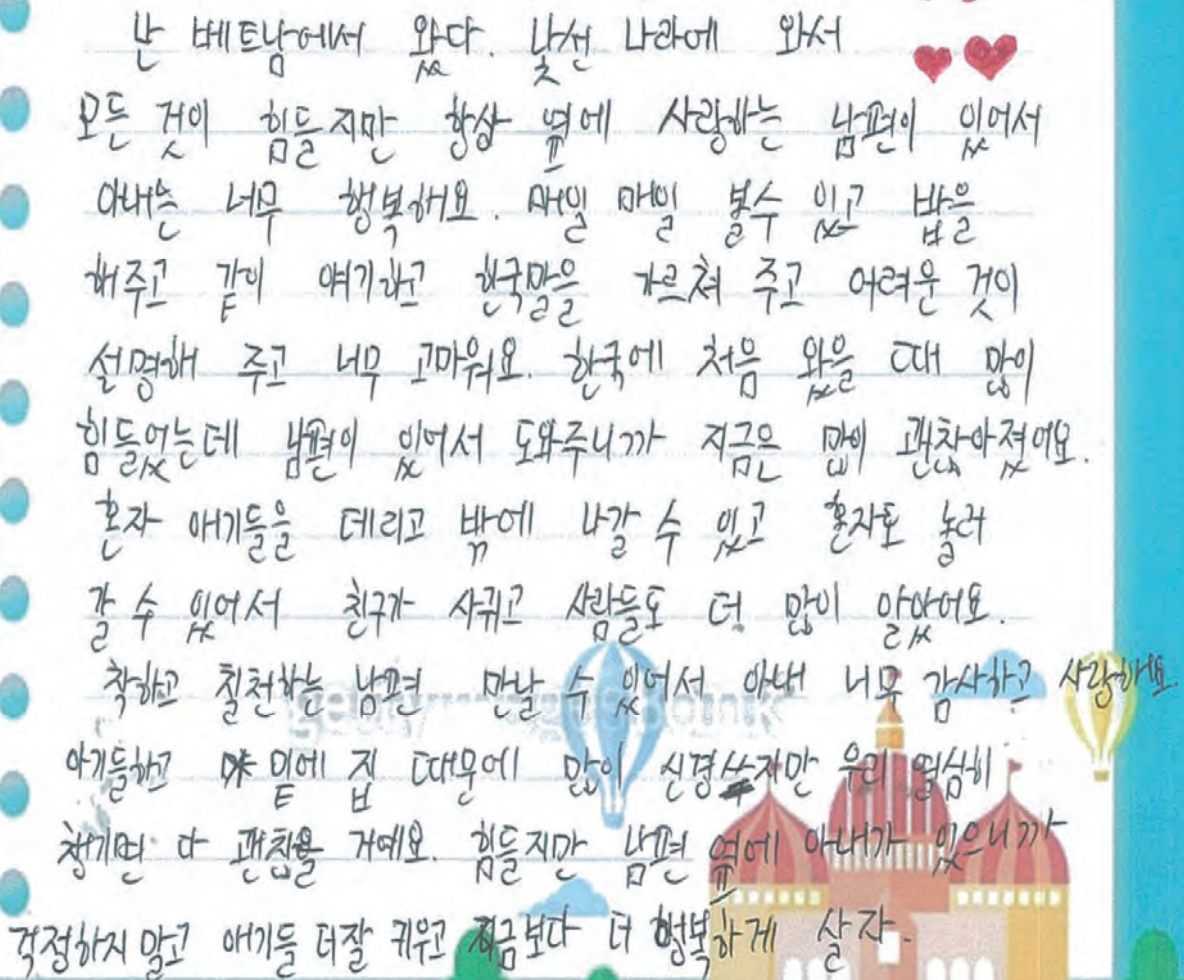 난 베트남에서 왔다. 낯선 나라에 와서
모든 것이 힘들지만 항상 옆에 사랑하는 남편이 있어서
아내는 너무 행복해요. 매일 매일 볼수 있고 밥을
해주고 같이 얘기하고 한국말을 가르쳐 주고 어려운 것이
설명해 주고 너무 고마워요. 한국에 처음 왔을 때 많이
힘들었는데 남편이 있어서 도와주니까 지금은 많이 괜찮아졌어요.
혼자 애기들을 데리고 밖에 나갈 수 있고 혼자도 놀러
갈 수 있어서 친구가 사귀고 사람들도 더 많이 알았어요.
착하고 칠천하는 남편 만날 수 있어서 아내 너무 감사하고 사랑해요.
아기들하고 밑에 집 때문에 많이 신경쓰지만 우리 열심히
챙기면 다 괜찮을 거예요. 힘들지만 남편 옆에 아내가 있으니까
걱정하지 말고 애기들 더잘 키우고 지금보다 더 행복하게 살자.